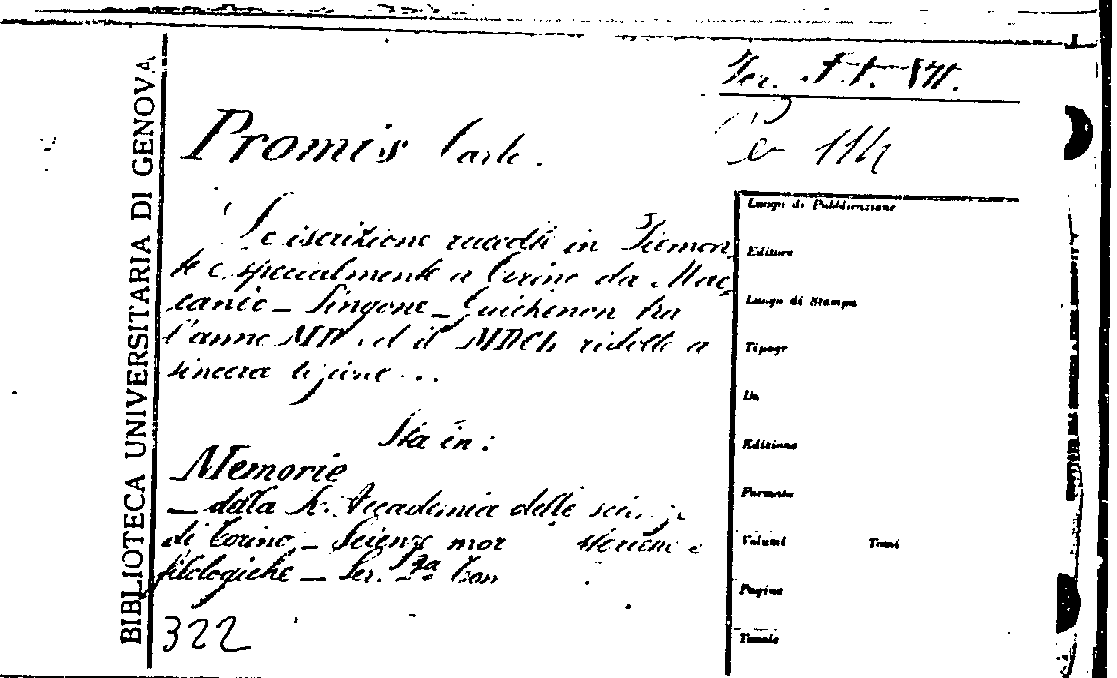 BIBLIOTECA UNIVERSITARIA DI GENOVA
Promis Carlo.
Le iscrizione raccolte in Piemon
te e specialmente a Torino da Mac
caneo - Pingone - Guichenon tra
l'anno MD ed il MDCL ridotte a
sincera lezione ...
Sta in:
Memorie
- della R. Accademia delle
di Torino - Scienze mor storiche e
filologiche - Ser. 2a Tom
322
Luogo di Pubblicazione
Editore
Luogo di Stampa
Tipogr
Da
Edizione
Formato
Volumi Tomi
Pagine
Tavole